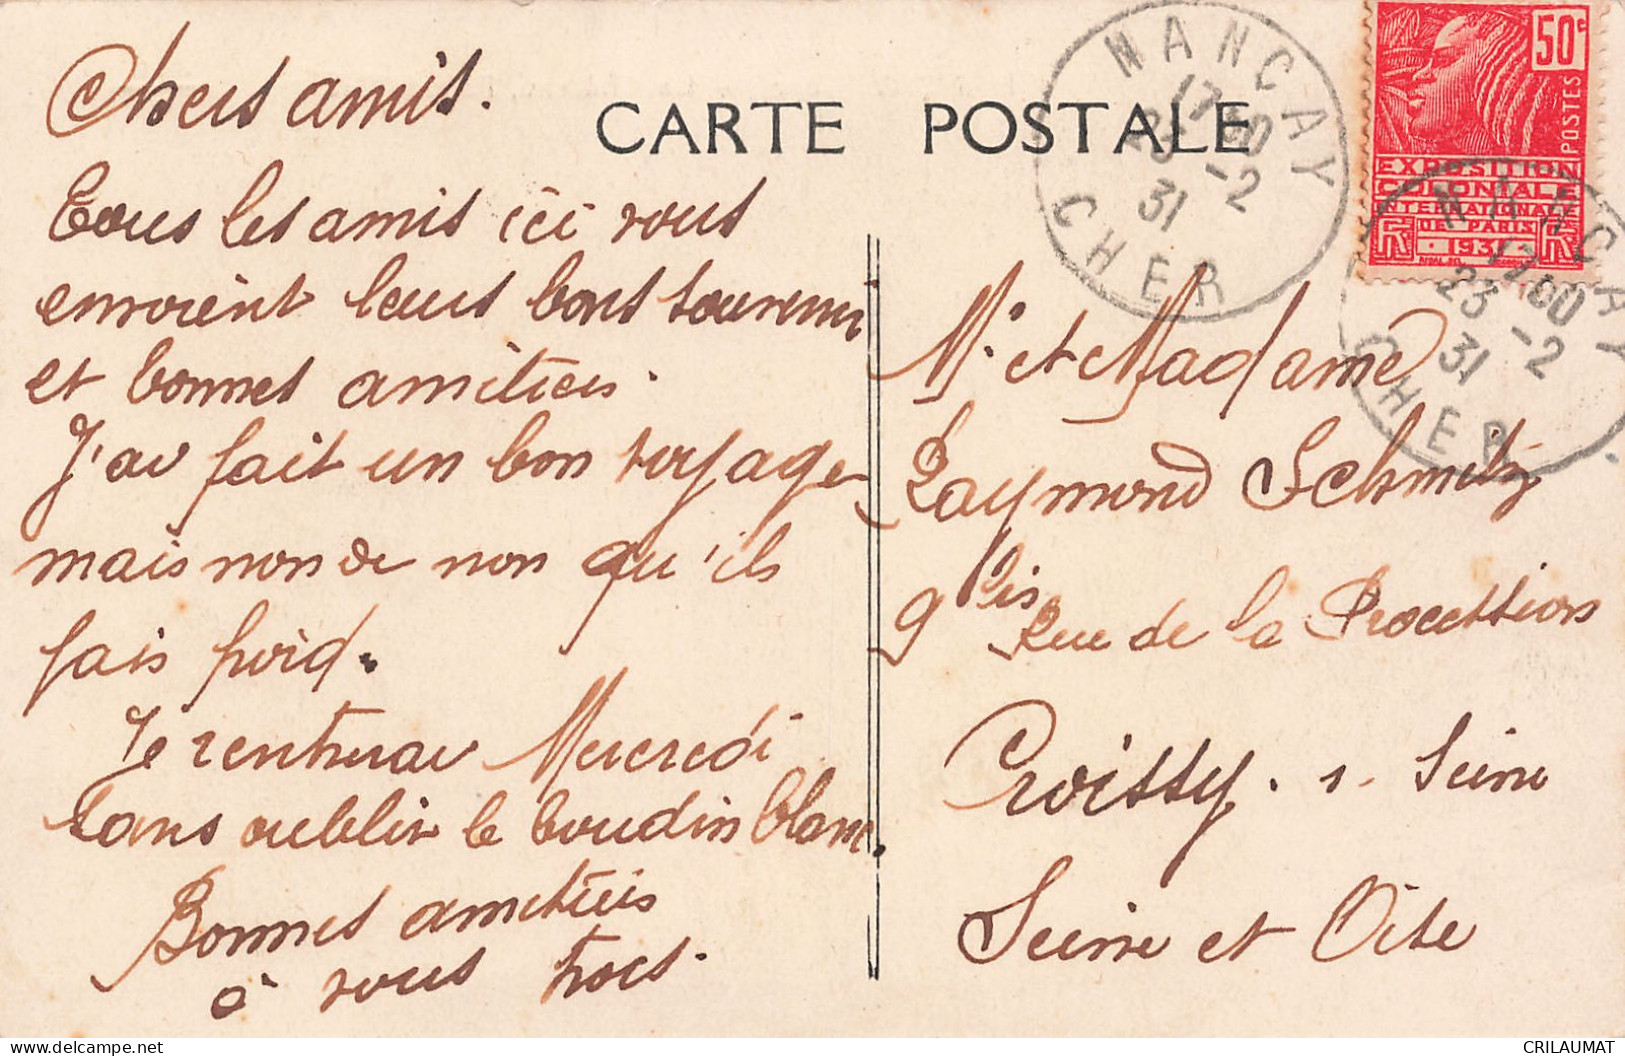 Chers amis.
CARTE POSTALE
Tous les amis ici vous
envoient leurs bons souvenir
et bonnes amitiées.
J'ai fait un bon voyage
mais non de non qu'ils
fais froid.
Je rentrerai Mercredi
sans oublier le boudin blanc.
Bonnes amitiées
à vous trois.
M. et Madame
Raymond Schmitz
9 bis Rue de la Procession
Croissy. s. Seine
Seine et Oise
NANCAY
17 00
23 -2
31
CHER
50c
POSTES
EXPOSITION
COLONIALE
INTERNATIONALE
DE PARIS
RF · 1931 · RF
NANCAY
17 00
23 -2
31
CHER
CRILAUMAT